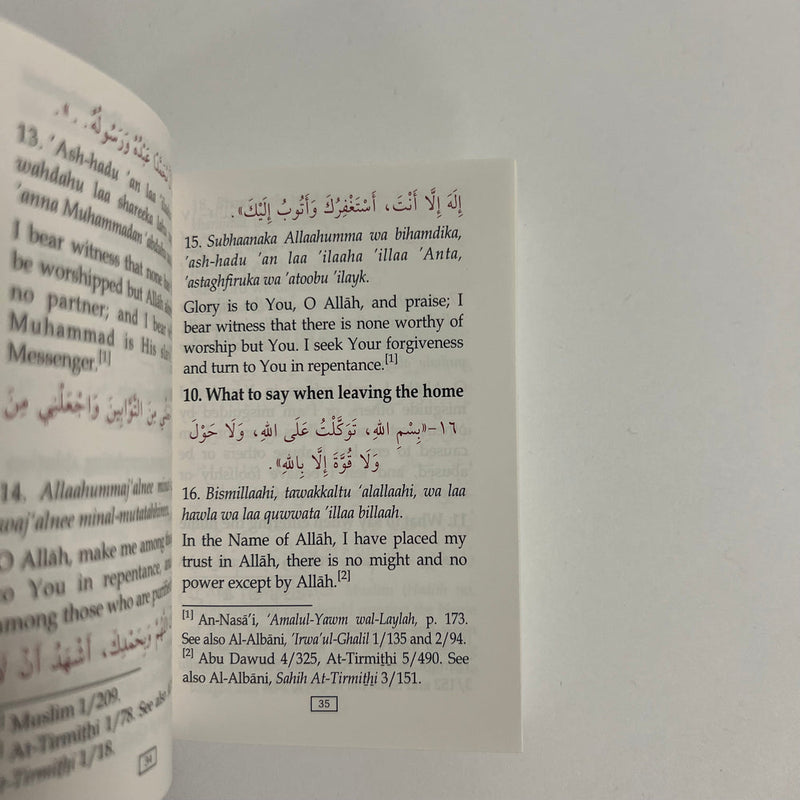 عَبْدُهُ وَرَسُولُهُ...».
13. 'Ash-hadu 'an laa
wahdahu laa shareeka
'anna Muhammadan 'abduhu
I bear witness that none
be worshipped but Allāh
no partner; and I bear
Muhammad is His
Messenger.[1]
مِنَ التَّوَّابِينَ وَاجْعَلْنِي مِنَ
14. Allaahummaj'alnee
waj'alnee minal-mutatahhireen.
O Allāh, make me among
to You in repentance,
among those who are
وَبِحَمْدِكَ، أَشْهَدُ أَنْ لَا
Muslim 1/209.
At-Tirmithi 1/78. See also
At-Tirmithi 1/18.
34
إِلَهَ إِلَّا أَنْتَ، أَسْتَغْفِرُكَ وَأَتُوبُ إِلَيْكَ».
15. Subhaanaka Allaahumma wa bihamdika,
'ash-hadu 'an laa 'ilaaha 'illaa 'Anta,
'astaghfiruka wa 'atoobu 'ilayk.
Glory is to You, O Allāh, and praise; I
bear witness that there is none worthy of
worship but You. I seek Your forgiveness
and turn to You in repentance.[1]
10. What to say when leaving the home
١٦-«بِسْمِ اللهِ، تَوَكَّلْتُ عَلَى اللهِ، وَلَا حَوْلَ
وَلَا قُوَّةَ إِلَّا بِاللهِ».
16. Bismillaahi, tawakkaltu 'alallaahi, wa laa
hawla wa laa quwwata 'illaa billaah.
In the Name of Allāh, I have placed my
trust in Allāh, there is no might and no
power except by Allāh.[2]
[1] An-Nasā'i, 'Amalul-Yawm wal-Laylah, p. 173.
See also Al-Albāni, 'Irwa'ul-Ghalil 1/135 and 2/94.
[2] Abu Dawud 4/325, At-Tirmiṯhi 5/490. See
also Al-Albāni, Sahih At-Tirmiṯhi 3/151.
35